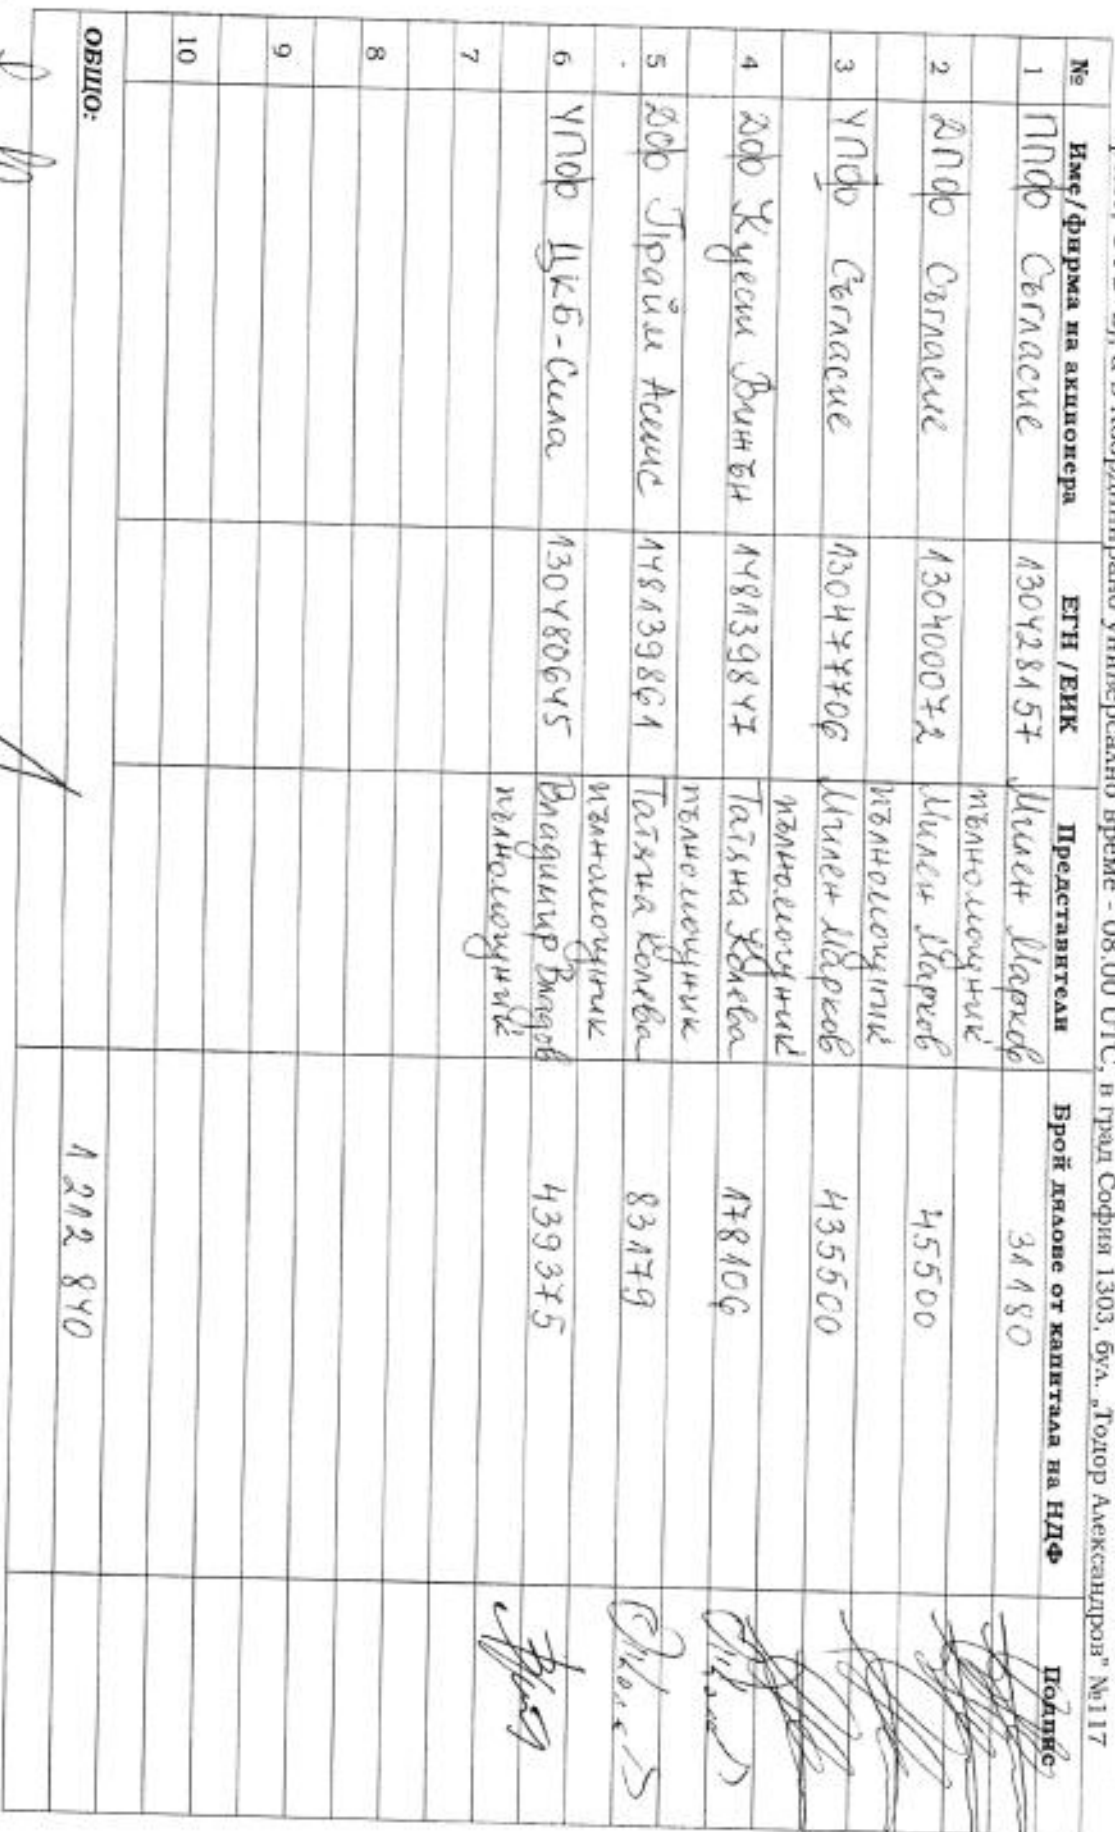 универсално време - 08.00 UTC, в град София 1303, бул. „Тодор Александров" №117
№ Име/фирма на акционера ЕГН /ЕИК Представители Брой дялове от капитала на НДФ Подпис
1 ППФ Съгласие 130428157 Милен Марков 31180
пълномощник
2 ДПФ Съгласие 130400072 Милен Марков 45500
пълномощник
3 УПФ Съгласие 130477706 Милен Марков 435500
пълномощник
4 ДФ Куест Винтън 148139847 Татяна Колева 178106
пълномощник
5 ДФ Прайм Асетс 148139861 Татяна Колева 83179
пълномощник
6 УПФ ЦКБ-Сила 130480645 Владимир Владов 439375
пълномощник
7
8
9
10
ОБЩО: 1 212 840